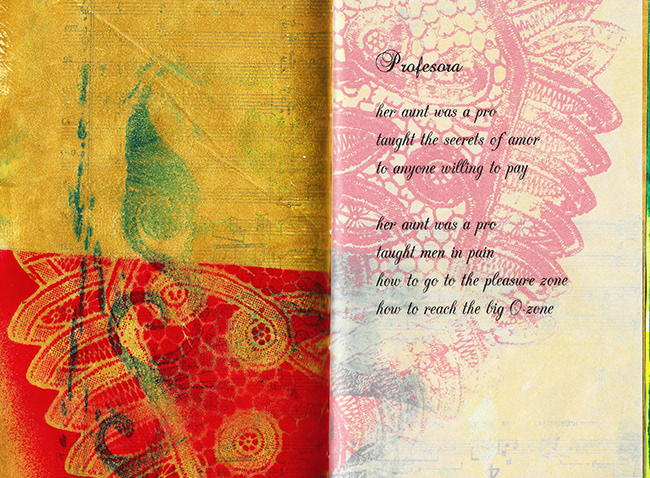 Profesora
her aunt was a pro
taught the secrets of amor
to anyone willing to pay
her aunt was a pro
taught men in pain
how to go to the pleasure zone
how to reach the big O-zone